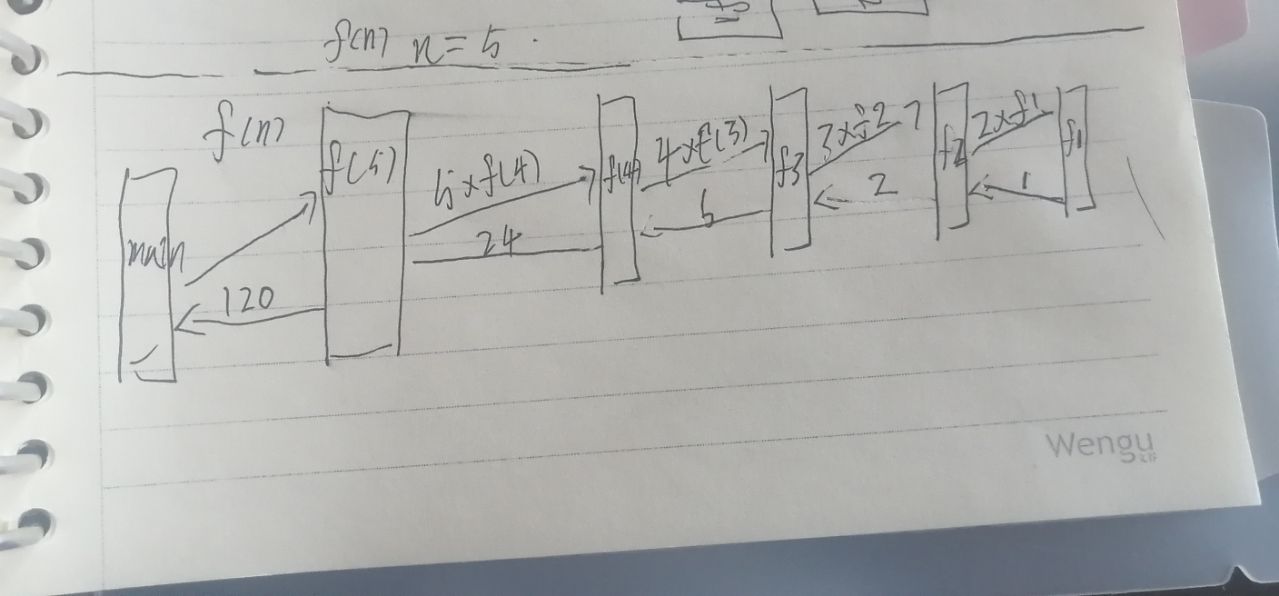 f(n) n = 5 .
f(n)
main
120
f(5)
5×f(4)
24
f(4)
4×f(3)
6
f3
3×f2
2
f2
2×f1
1
f1
Wengu